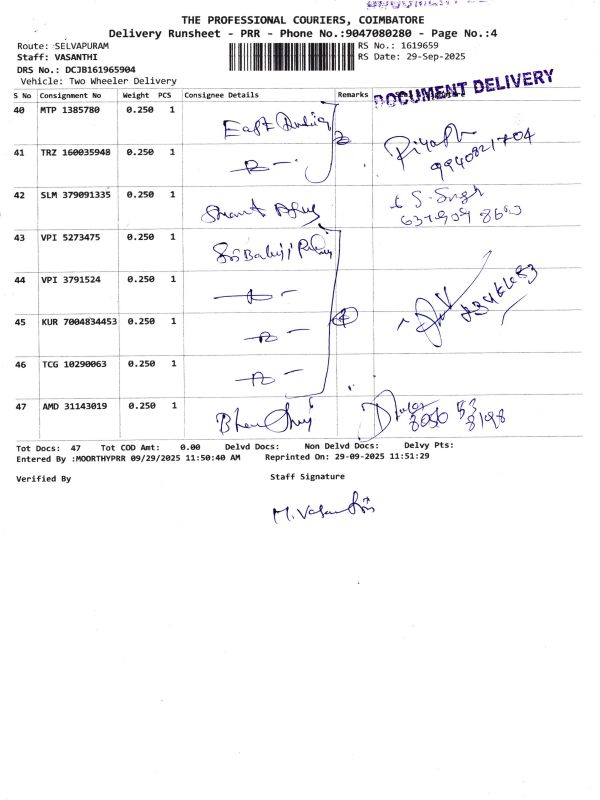 THE PROFESSIONAL COURIERS, COIMBATORE
Delivery Runsheet - PRR - Phone No.:9047080280 - Page No.:4
Route: SELVAPURAM
RS No.: 1619659
Staff: VASANTHI
RS Date: 29-Sep-2025
DRS No.: DCJB161965904
Vehicle: Two Wheeler Delivery
DOCUMENT DELIVERY
S No Consignment No Weight PCS Consignee Details Remarks
40 MTP 1385780 0.250 1 East
2
41 TRZ 160035948 0.250 1
9940821704
42 SLM 379091335 0.250 1
S. Singh
43 VPI 5273475 0.250 1 Sri Balaji
44 VPI 3791524 0.250 1
45 KUR 7004834453 0.250 1
4
46 TCG 10290063 0.250 1
47 AMD 31143019 0.250 1
8050 53
8198
Tot Docs: 47 Tot COD Amt: 0.00 Delvd Docs: Non Delvd Docs: Delvy Pts:
Entered By :MOORTHYPRR 09/29/2025 11:50:40 AM Reprinted On: 29-09-2025 11:51:29
Verified By Staff Signature
M. Vasanthi